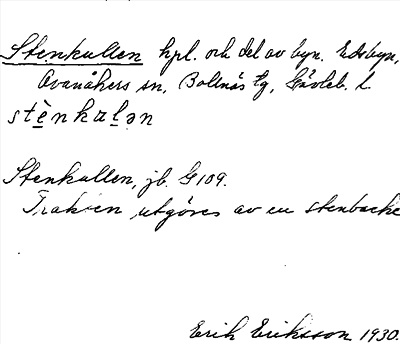 Stenkullen hpl. och del av byn. Edsbyn,
Ovanåkers sn, Bollnäs tg, Gävleb. l.
stènkalən
Stenkullen, jb. G 109.
Trakten utgöres av en stenbacke
Erik Eriksson 1930.